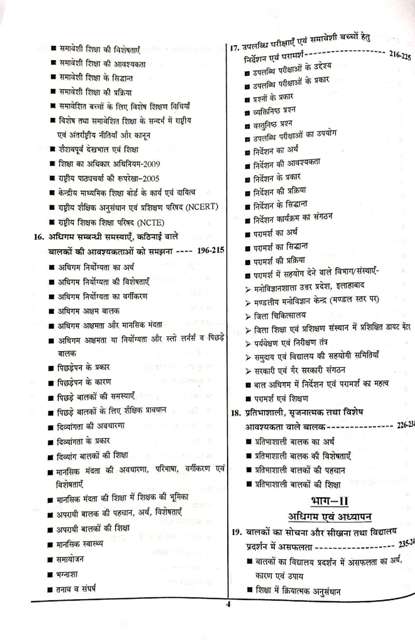 ■ समावेशी शिक्षा की विशेषताएँ
■ समावेशी शिक्षा की आवश्यकता
■ समावेशी शिक्षा के सिद्धान्त
■ समावेशी शिक्षा की प्रक्रिया
■ समावेशित बच्चों के लिए विशेष शिक्षण विधियाँ
■ विशेष तथा समावेशित शिक्षा के सन्दर्भ में राष्ट्रीय
एवं अंतर्राष्ट्रीय नीतियाँ और कानून
■ शैशवपूर्व देखभाल एवं शिक्षा
■ शिक्षा का अधिकार अधिनियम-2009
■ राष्ट्रीय पाठ्यचर्या की रुपरेखा-2005
■ केन्द्रीय माध्यमिक शिक्षा बोर्ड के कार्य एवं दायित्व
■ राष्ट्रीय शैक्षिक अनुसंधान एवं प्रशिक्षण परिषद (NCERT)
■ राष्ट्रीय शिक्षक शिक्षा परिषद (NCTE)
16. अधिगम सम्बन्धी समस्याएँ, कठिनाई वाले
बालकों की आवश्यकताओं को समझना ---- 196-215
■ अधिगम निर्योग्यता का अर्थ
■ अधिगम निर्योग्यता की विशेषताएँ
■ अधिगम निर्योग्यता का वर्गीकरण
■ अधिगम अक्षम बालक
■ अधिगम अक्षमता और मानसिक मंदता
■ अधिगम अक्षमता या निर्योग्यता और स्लो लर्नर्स व पिछड़े
बालक
■ पिछड़ेपन के प्रकार
■ पिछड़ेपन के कारण
■ पिछड़े बालकों की समस्याएँ
■ पिछड़े बालकों के लिए शैक्षिक प्रावधान
■ दिव्यांगता की अवधारणा
■ दिव्यांगता के प्रकार
■ दिव्यांग बालकों की शिक्षा
■ मानसिक मंदता की अवधारणा, परिभाषा, वर्गीकरण एवं
विशेषताएँ
■ मानसिक मंदता की शिक्षा में शिक्षक की भूमिका
■ अपराधी बालक की पहचान, अर्थ, विशेषताएँ
■ अपराधी बालकों की शिक्षा
■ मानसिक स्वास्थ्य
■ समायोजन
■ भग्नाशा
■ तनाव व संघर्ष
17. उपलब्धि परीक्षाएँ एवं समावेशी बच्चों हेतु
निर्देशन एवं परामर्श ---- 216-225
■ उपलब्धि परीक्षाओं के उद्देश्य
■ उपलब्धि परीक्षाओं के प्रकार
■ प्रश्नों के प्रकार
■ व्यक्तिनिष्ठ प्रश्न
■ वस्तुनिष्ठ प्रश्न
■ उपलब्धि परीक्षाओं का उपयोग
■ निर्देशन का अर्थ
■ निर्देशन की आवश्यकता
■ निर्देशन के प्रकार
■ निर्देशन की प्रक्रिया
■ निर्देशन के सिद्धान्त
■ निर्देशन कार्यक्रम का संगठन
■ परामर्श का अर्थ
■ परामर्श का सिद्धान्त
■ परामर्श की प्रक्रिया
■ परामर्श में सहयोग देने वाले विभाग/संस्थाएँ-
➢ मनोविज्ञानशाला उत्तर प्रदेश, इलाहाबाद
➢ मण्डलीय मनोविज्ञान केन्द्र (मण्डल स्तर पर)
➢ जिला चिकित्सालय
➢ जिला शिक्षा एवं प्रशिक्षण संस्थान में प्रशिक्षित डायट मेंटर
➢ पर्यवेक्षण एवं निरीक्षण तंत्र
➢ समुदाय एवं विद्यालय की सहयोगी समितियाँ
➢ सरकारी एवं गैर सरकारी संगठन
■ बाल अधिगम में निर्देशन एवं परामर्श का महत्व
■ परामर्श एवं शिक्षण
18. प्रतिभाशाली, सृजनात्मक तथा विशेष
आवश्यकता वाले बालक ----
■ प्रतिभाशाली बालक का अर्थ
■ प्रतिभाशाली बालक की विशेषताएँ
■ प्रतिभाशाली बालकों की पहचान
■ प्रतिभाशाली बालकों की शिक्षा
भाग-II
अधिगम एवं अध्यापन
19. बालकों का सोचना और सीखना तथा विद्यालय
प्रदर्शन में असफलता ----
■ बालकों का विद्यालय प्रदर्शन में असफलता का अर्थ,
कारण एवं उपाय
■ शिक्षा में क्रियात्मक अनुसंधान
4